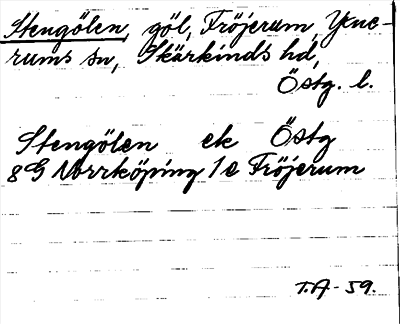 Stengölen, göl, Fröjerum, Yxne-
rums sn, Skärkinds hd,
Östg. l.
Stengölen ek Östg
8G Norrköping 1e Fröjerum
T.A-59.